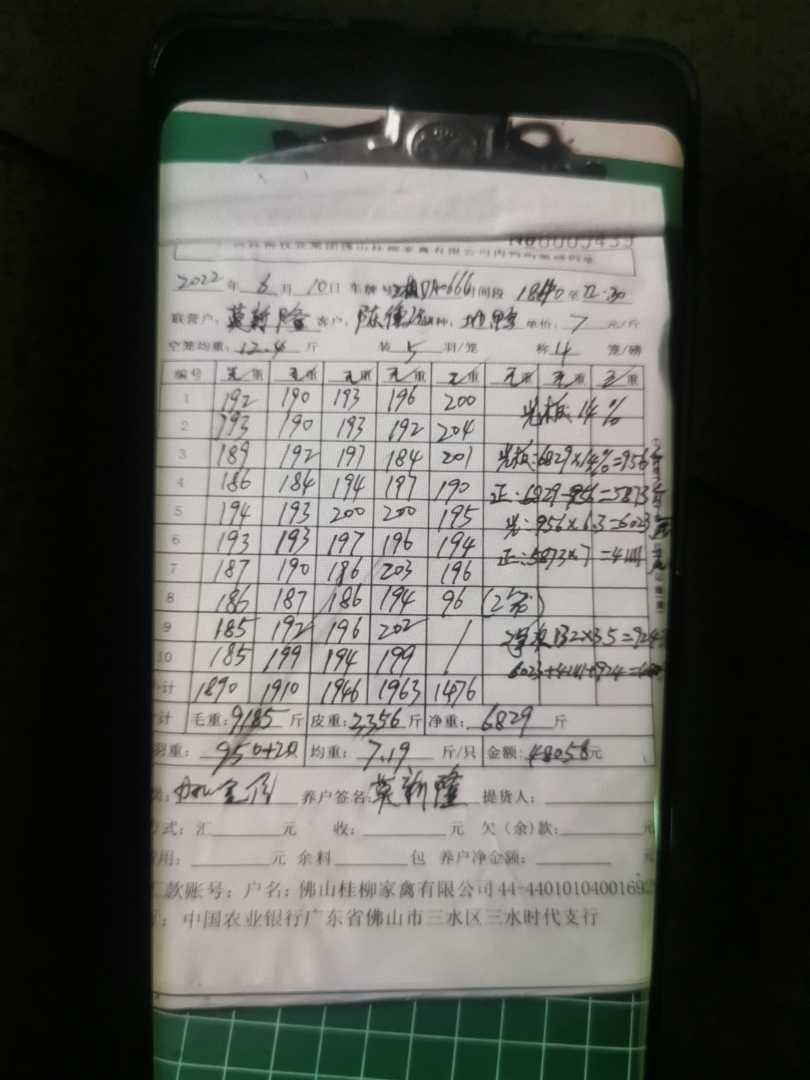 佛山桂柳家禽有限公司
No 0005439
2022 年 6 月 10 日 车牌号 A-666 时间段 1840 至 22:30
联营户: 莫新隆 客户: 陈德 种: 单价: 7 元/斤
空笼均重: 12.4 斤 装 5 羽/笼 称 4 笼/磅
编号 毛重 毛重 毛重 毛重 毛重 毛重 毛重 毛重
1 192 190 193 196 200 光板 14%
2 193 190 193 192 204
3 189 192 197 184 201 光板:6829×14%=956斤
4 186 184 194 197 190 正:6829-956=5873斤
5 194 193 200 200 195 光:956×6.3=6023元
6 193 193 197 196 194 正:5873×7=411
7 187 190 186 203 196
8 186 187 186 194 96 (2笼)
9 185 192 196 202 / 132×3.5=924
10 185 199 194 199 / 6023+4111+924=
计 1890 1910 1946 1963 1476
计 毛重: 9185 斤 皮重: 2356 斤 净重: 6829 斤
羽重: 950+20 均重: 7.19 斤/只 金额: 48058 元
养户签名: 莫新隆 提货人:
方式: 汇 元 收: 元 欠(余)款: 元
用: 元 余料 包 养户净金额: 元
款账号: 户名: 佛山桂柳家禽有限公司 44-44010104001692
中国农业银行广东省佛山市三水区三水时代支行